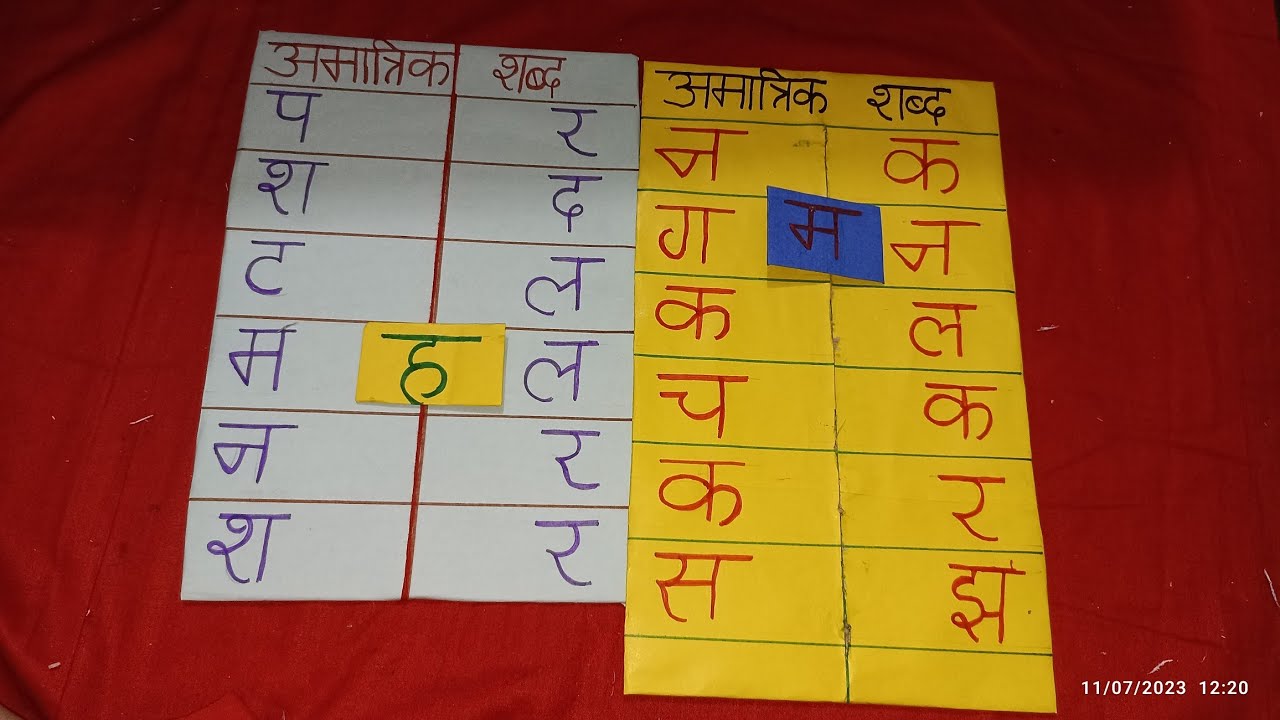 अमात्रिक शब्द
प र
श द
ट ल
म ह ल
न र
श र
अमात्रिक शब्द
न क
ग म न
क ल
च क
क र
स झ
11/07/2023 12:20